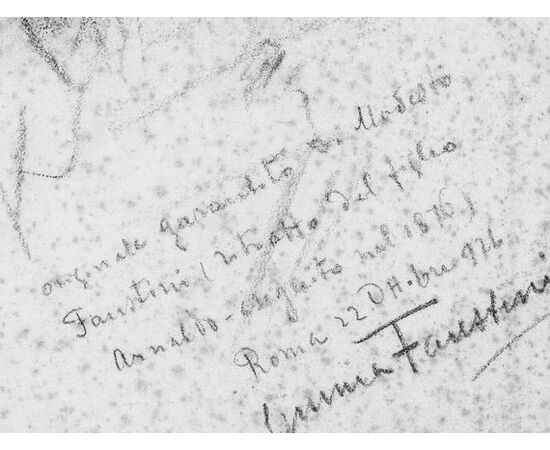 originale garantito di Modesto
Faustini (ritratto del figlio
Arnaldo-eseguito nel 1876)
Roma 22 Ott.bre 926
Faustini